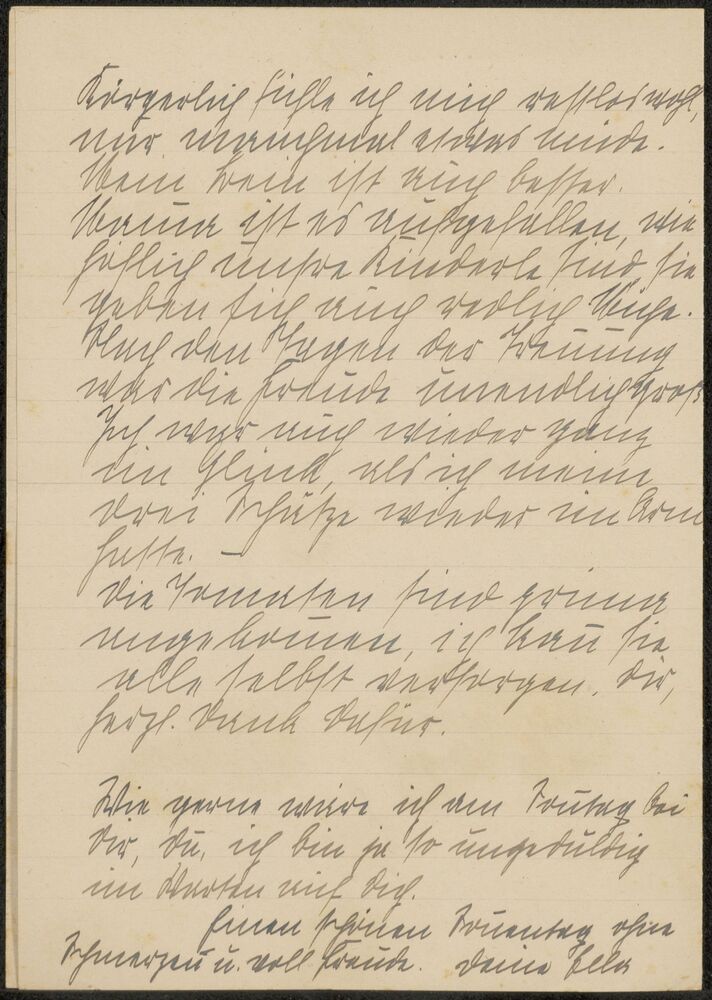 Körperlich fühle ich mich restlos wohl,
nur manchmal etwas müde.
Mein Bein ist auch besser.
Mama ist es aufgefallen, wie
höflich unsre Kinderle sind, sie
geben sich auch redlich Mühe.
Nach den Tagen der Trennung
war die Freude unendlich groß
Ich war auch wieder ganz
im Glück, als ich meine
drei Schätze wieder im Arm
hatte. —
Die Tomaten sind prima
angekommen, ich kann sie
alle selbst versorgen. Dir,
herzl. Dank dafür.
Wie gerne wäre ich am Sonntag bei
Dir, Du, ich bin ja so ungeduldig
im Warten auf Dich.
Einen schönen Sonntag ohne
Schmerzen u. voll Freude. Deine Ella